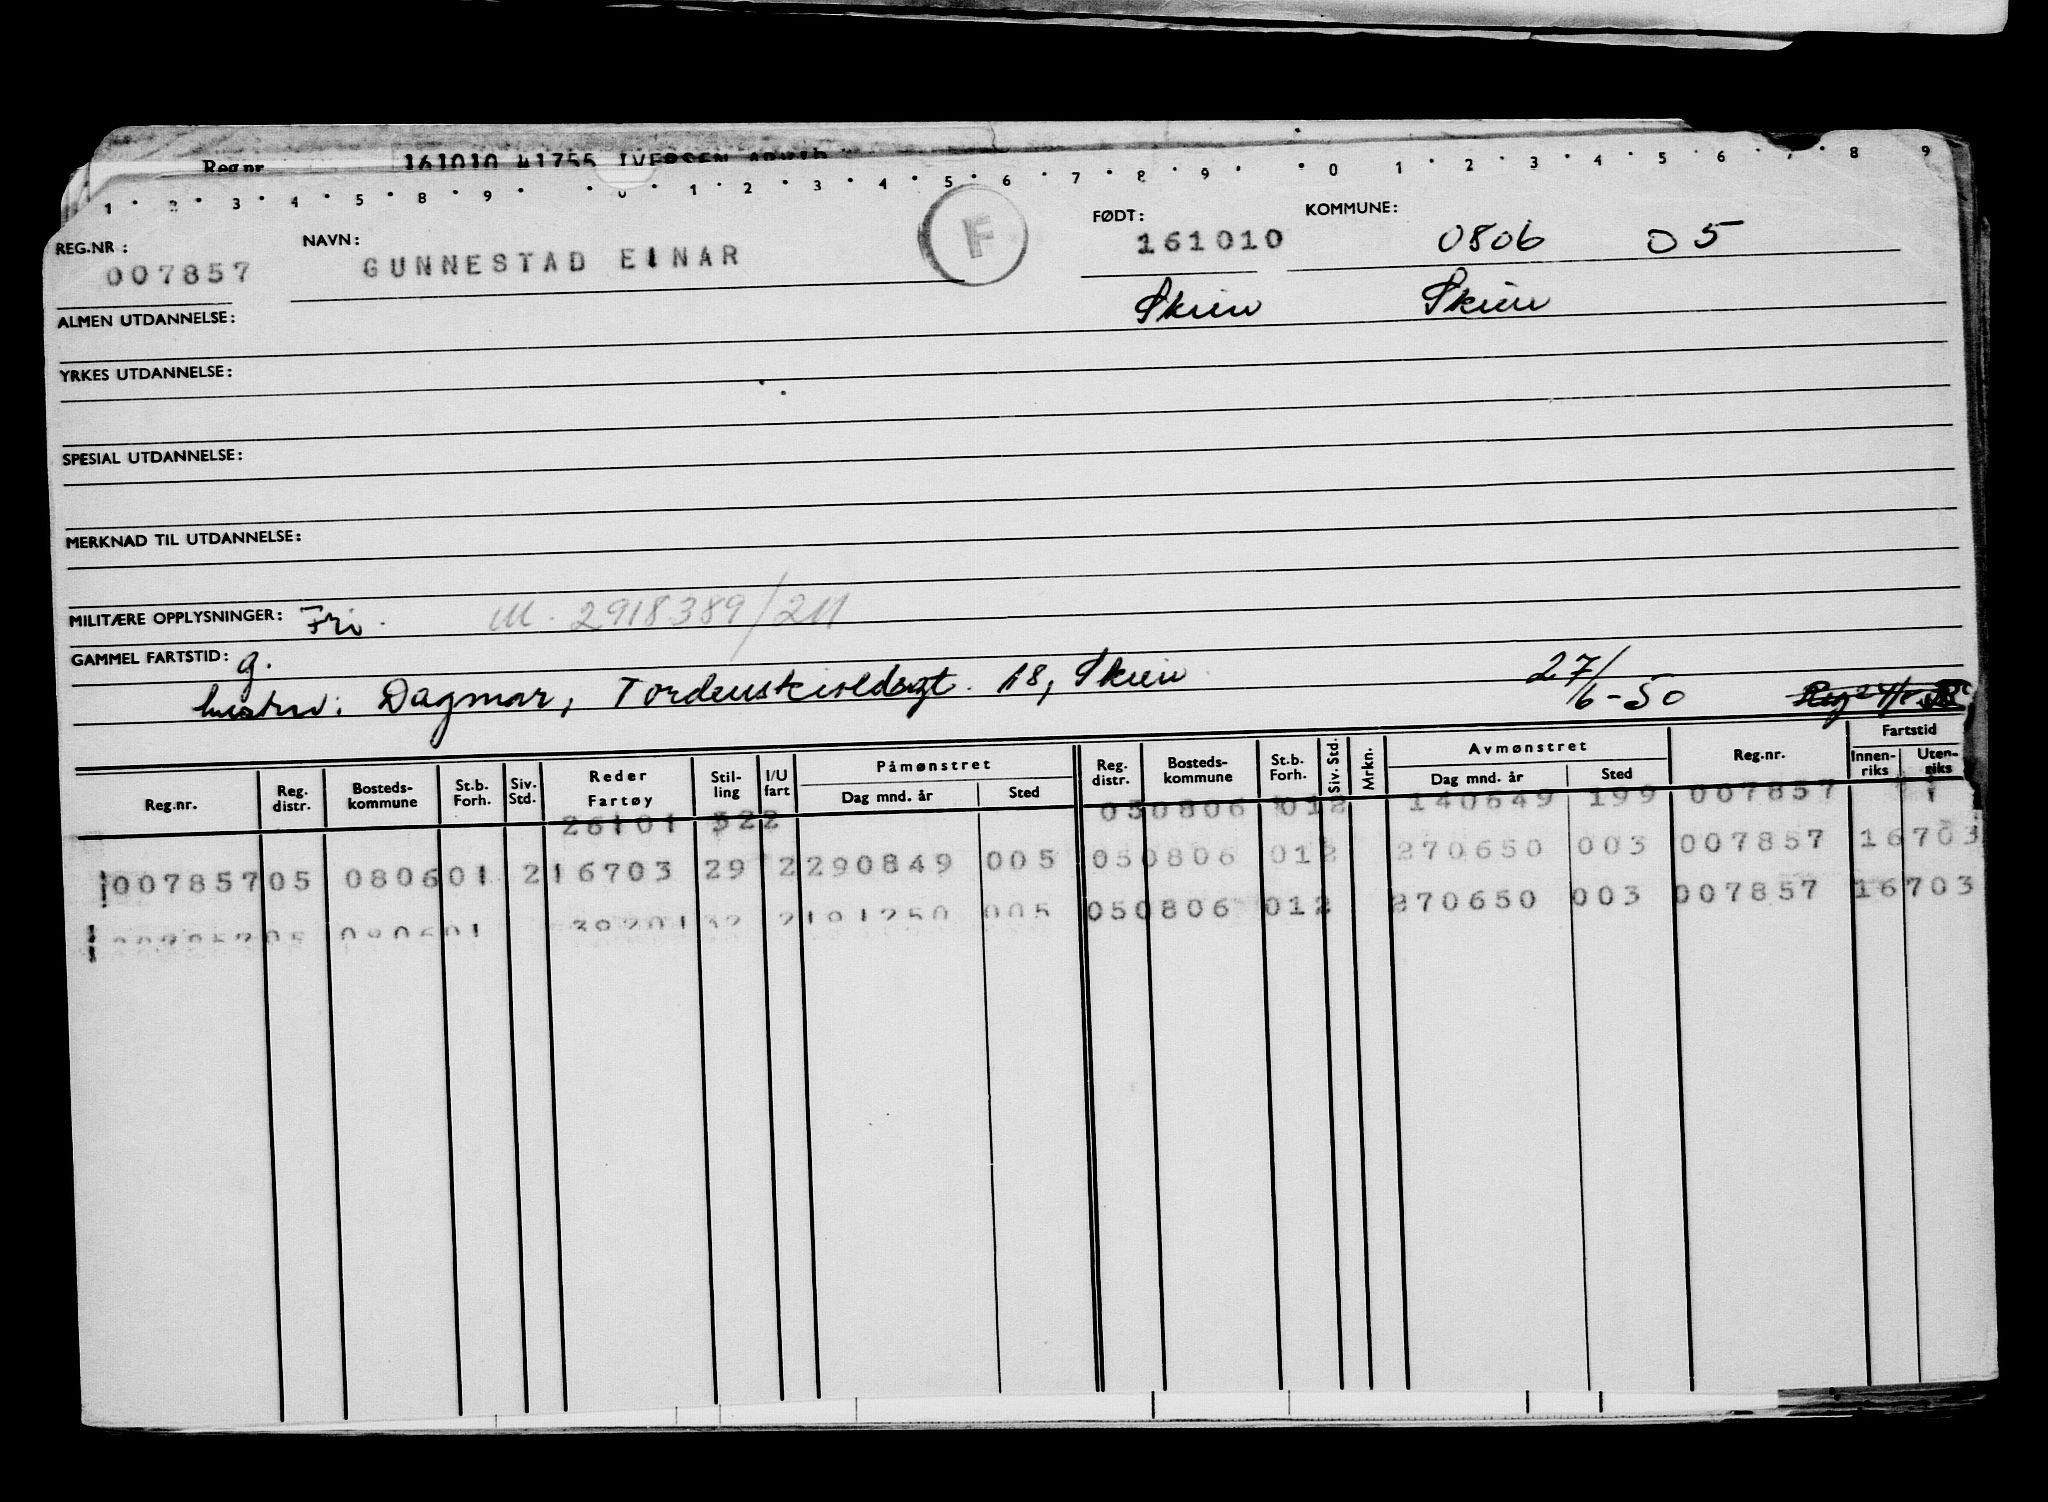 Reg.nr 161010 41755 IVERSEN ARVID
1 2 3 4 5 8 9 0 1 2 3 4 5 6 7 8 9 0 1 2 3 4 5 6 7 8 9
REG.NR : NAVN: F FØDT: KOMMUNE:
007857 GUNNESTAD EINAR 161010 0806 05
ALMEN UTDANNELSE: Skien Skien
YRKES UTDANNELSE:
SPESIAL UTDANNELSE:
MERKNAD TIL UTDANNELSE:
MILITÆRE OPPLYSNINGER: Fri. M. 2918389/211
GAMMEL FARTSTID: g.
hustru: Dagmar, Tordenskioldsgt. 18, Skien 27/6-50
Reg.nr. Reg. distr. Bosteds-kommune St.b. Forh. Siv. Std. Reder Fartøy Stil-ling I/U fart Påmønstret Dag mnd. år Sted Reg. distr. Bosteds-kommune St.b. Forh. Siv. Std. Mrkn. Avmønstret Dag mnd. år Sted Reg.nr. Fartstid Innen-riks Uten-riks
26101 322 050806 012 140649 199 007857
007857 05 0806 01 2 16703 29 2 290849 005 050806 012 270650 003 007857 16703
007857 05 0806 01 39201 32 2 191250 005 050806 012 270650 003 007857 16703